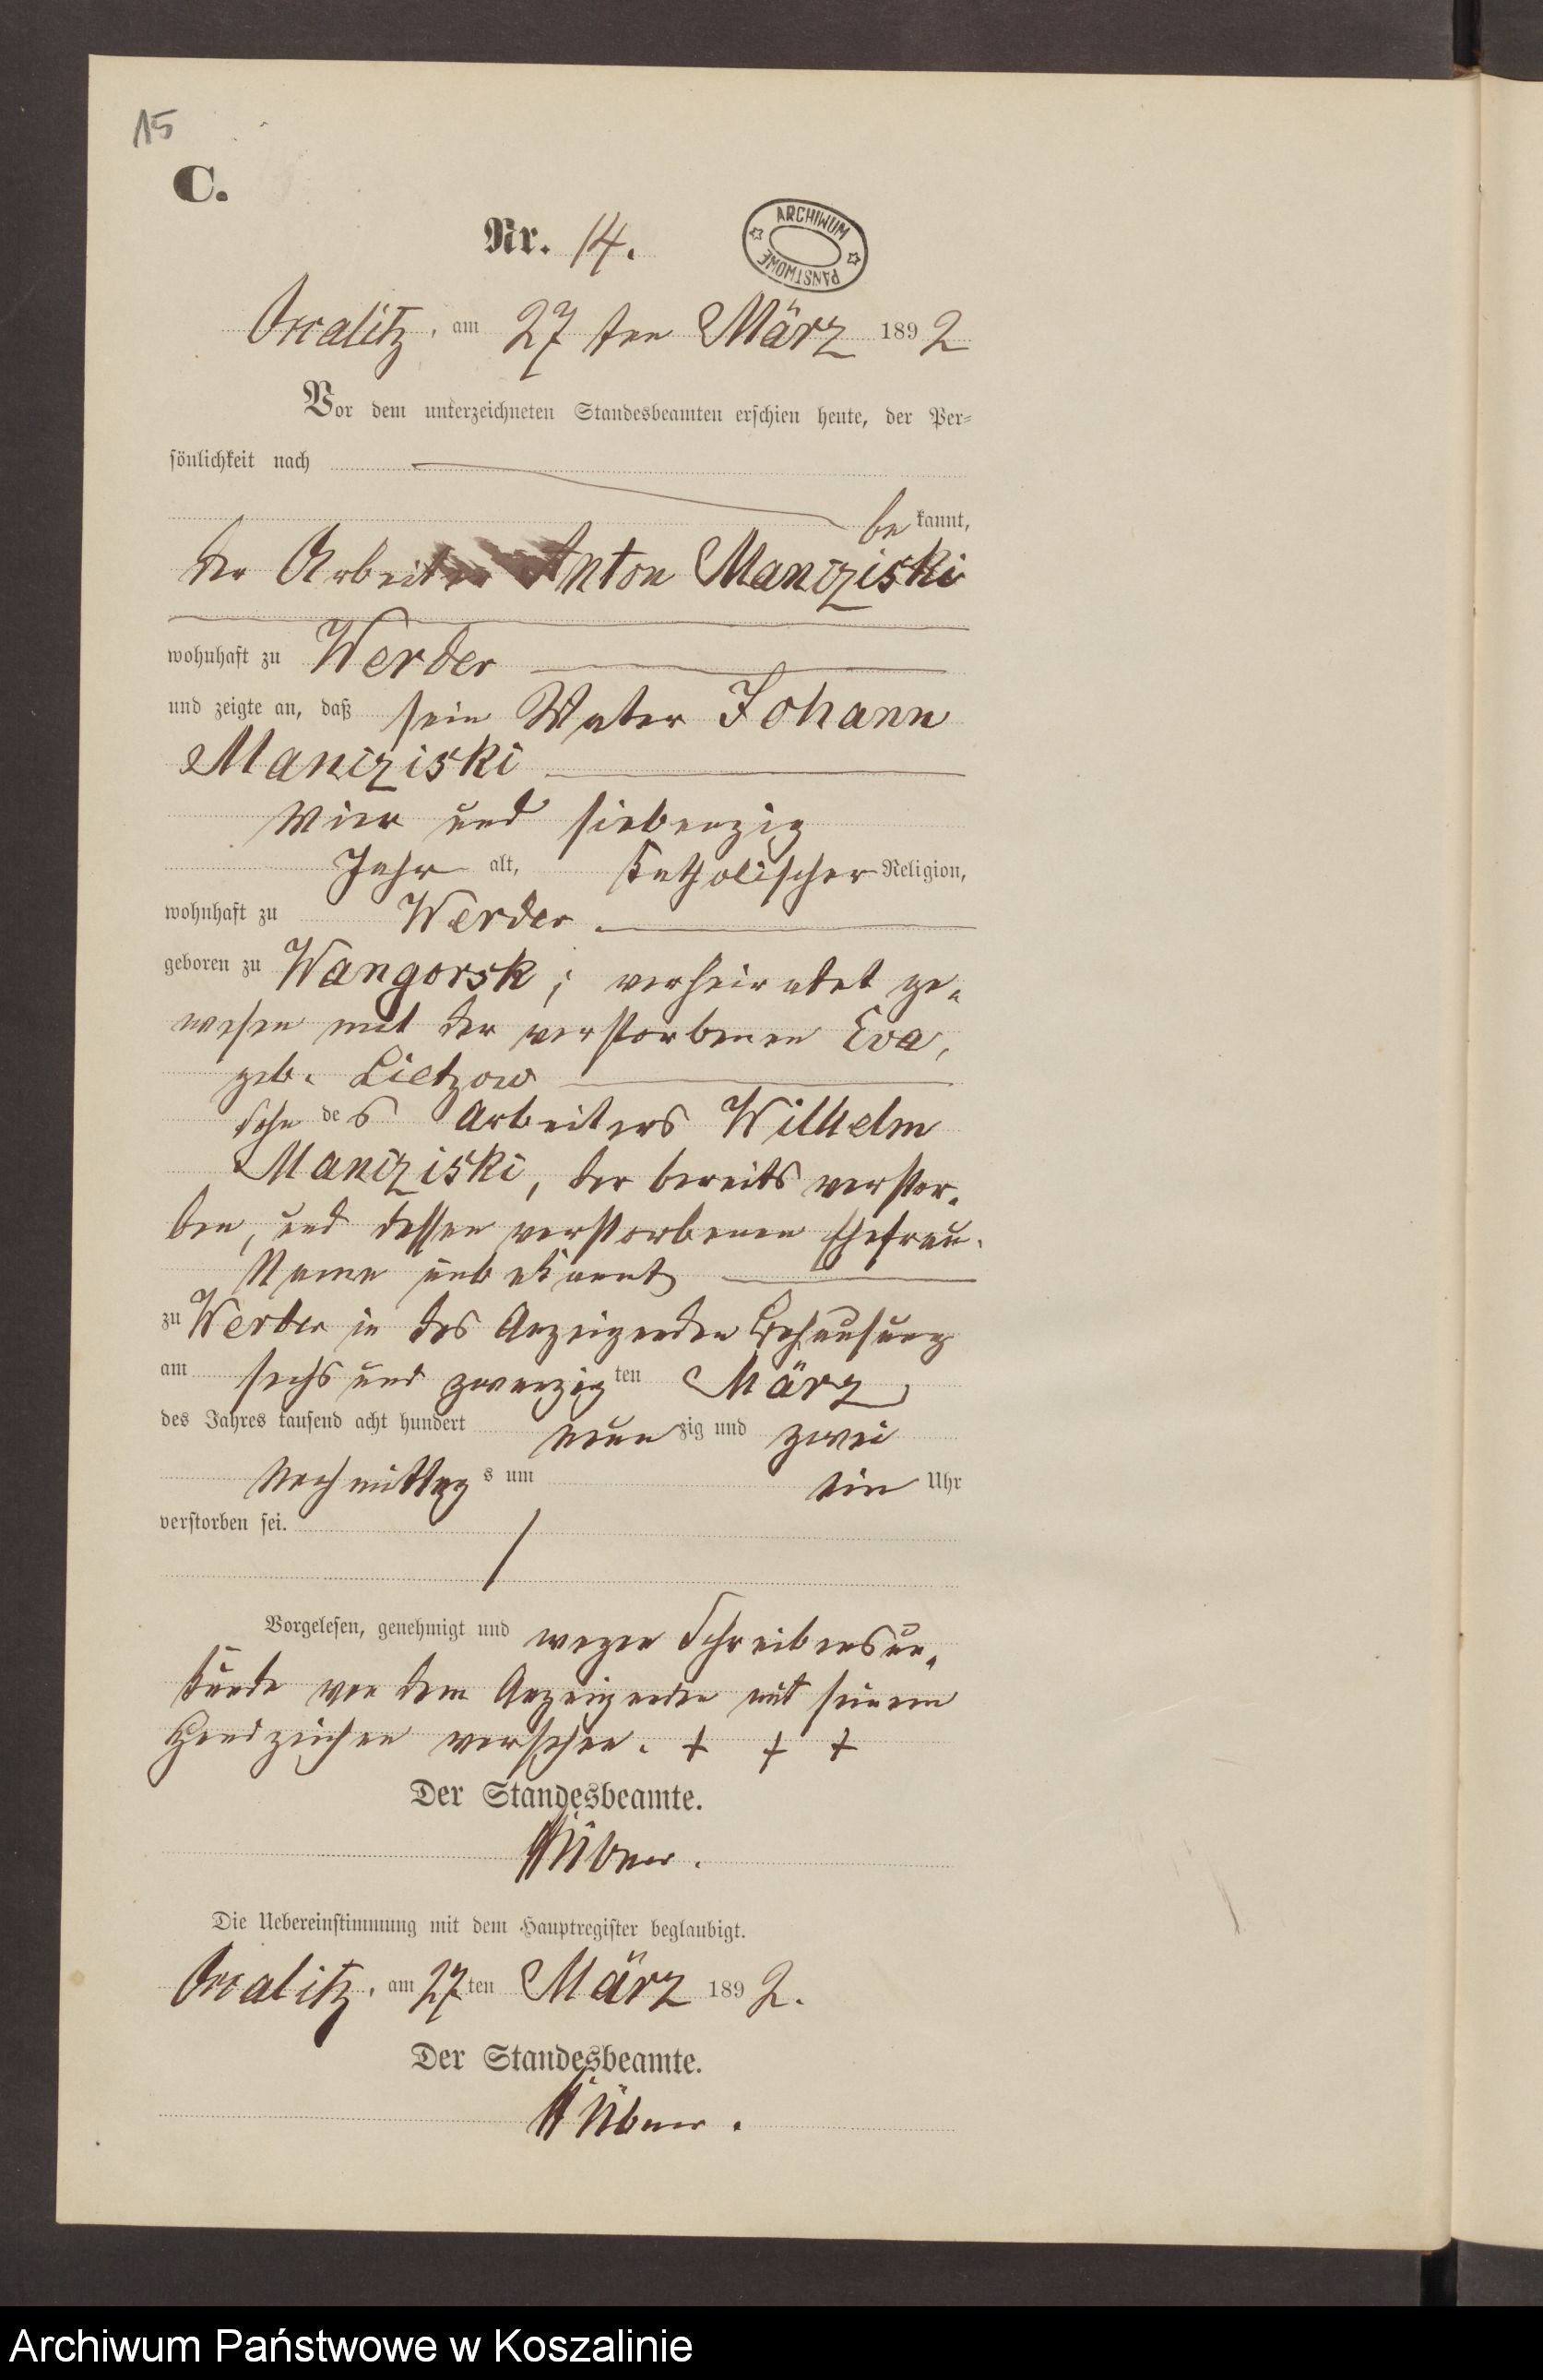 15
C.
Nr. 14.
ARCHIWUM PAŃSTWOWE
am 27 ten März 1892
Vor dem unterzeichneten Standesbeamten erschien heute, der Per=
sönlichkeit nach
bekannt,
der Arbeiter Anton Manizziski
wohnhaft zu Werder
und zeigte an, daß sein Vater Johann
Maniziski
Vier und siebenzig
Jahr alt, Katholischer Religion,
wohnhaft zu Werder
geboren zu Wangorsk; verheiratet ge-
wesen mit der verstorbenen Eva,
geb. Lietzow
Sohn des Arbeiters Wilhelm
Maniziski, der bereits verstor-
ben, und dessen verstorbenen Ehefrau.
Name unbekannt
zu Werder in des Anzeigenden Behausung
am sechs und zwanzigten März
des Jahres tausend acht hundert neunzig und zwei
Nachmittags um ein Uhr
verstorben sei.
Vorgelesen, genehmigt und wegen Schreibensun-
kunde von dem Anzeigenden mit seinem
Handzeichen versehen. + + +
Der Standesbeamte.
Hübner.
Die Uebereinstimmung mit dem Hauptregister beglaubigt.
am 27ten März 1892.
Der Standesbeamte.
Hübner.
Archiwum Państwowe w Koszalinie